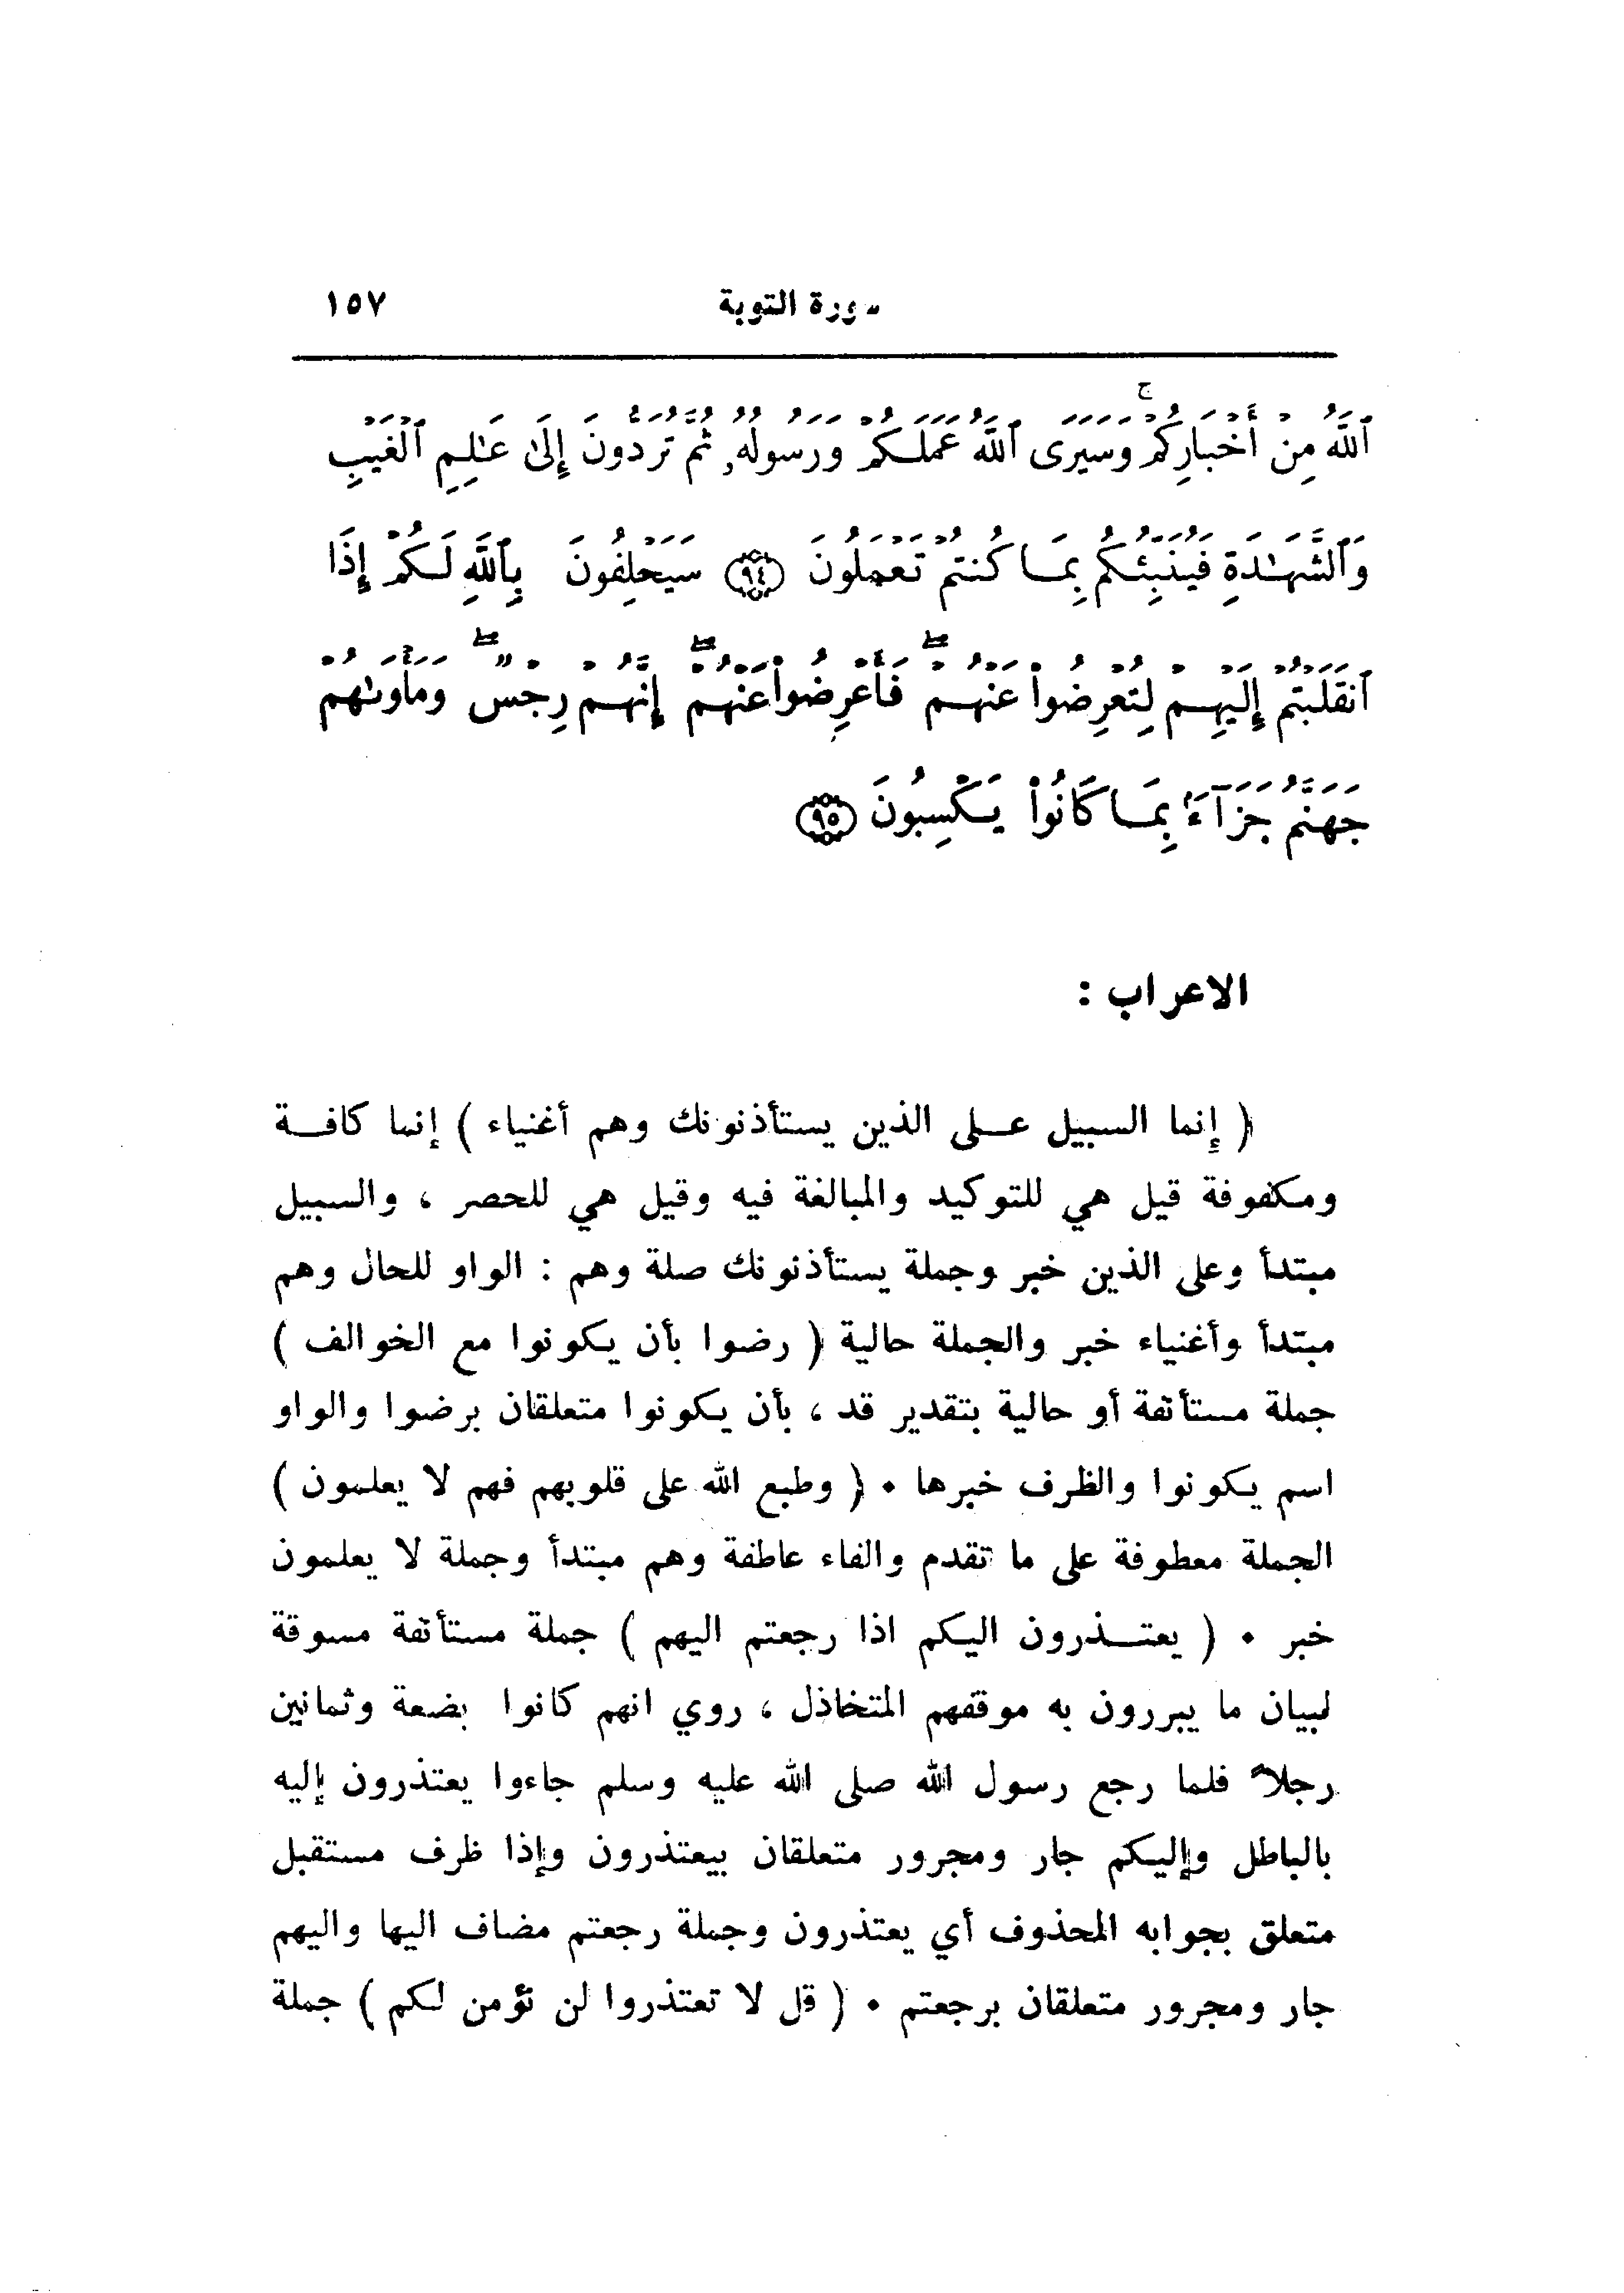 سورة التوبة ١٥٧
ٱللَّهُ مِنْ أَخْبَارِكُمْ ۚ وَسَيَرَى ٱللَّهُ عَمَلَكُمْ وَرَسُولُهُۥ ثُمَّ تُرَدُّونَ إِلَىٰ عَـٰلِمِ ٱلْغَيْبِ
وَٱلشَّهَـٰدَةِ فَيُنَبِّئُكُم بِمَا كُنتُمْ تَعْمَلُونَ ﴿٩٤﴾ سَيَحْلِفُونَ بِٱللَّهِ لَكُمْ إِذَا
ٱنقَلَبْتُمْ إِلَيْهِمْ لِتُعْرِضُوا۟ عَنْهُمْ ۖ فَأَعْرِضُوا۟ عَنْهُمْ ۖ إِنَّهُمْ رِجْسٌ ۖ وَمَأْوَىٰهُمْ
جَهَنَّمُ جَزَآءًۢ بِمَا كَانُوا۟ يَكْسِبُونَ ﴿٩٥﴾
الاعراب :
( إنما السبيل عـلى الذين يستأذنونك وهم أغنياء ) إنما كافـة
ومكفوفة قيل هي للتوكيد والمبالغة فيه وقيل هي للحصر ، والسبيل
مبتدأ وعلى الذين خبر وجملة يستأذنونك صلة وهم : الواو للحال وهم
مبتدأ وأغنياء خبر والجملة حالية ( رضوا بأن يكونوا مع الخوالف )
جملة مستأنفة أو حالية بتقدير قد ، بأن يكونوا متعلقان برضوا والواو
اسم يكونوا والظرف خبرها ٠ ( وطبع الله على قلوبهم فهم لا يعلمون )
الجملة معطوفة على ما تقدم والفاء عاطفة وهم مبتدأ وجملة لا يعلمون
خبر ٠ ( يعتـذرون اليكم اذا رجعتم اليهم ) جملة مستأنفة مسوقة
لبيان ما يبررون به موقفهم المتخاذل ، روي انهم كانوا بضعة وثمانين
رجلاً فلما رجع رسول الله صلى الله عليه وسلم جاءوا يعتذرون إليه
بالباطل وإليكم جار ومجرور متعلقان بيعتذرون وإذا ظرف مستقبل
متعلق بجوابه المحذوف أي يعتذرون وجملة رجعتم مضاف اليها واليهم
جار ومجرور متعلقان برجعتم ٠ ( قل لا تعتذروا لن نؤمن لكم ) جملة